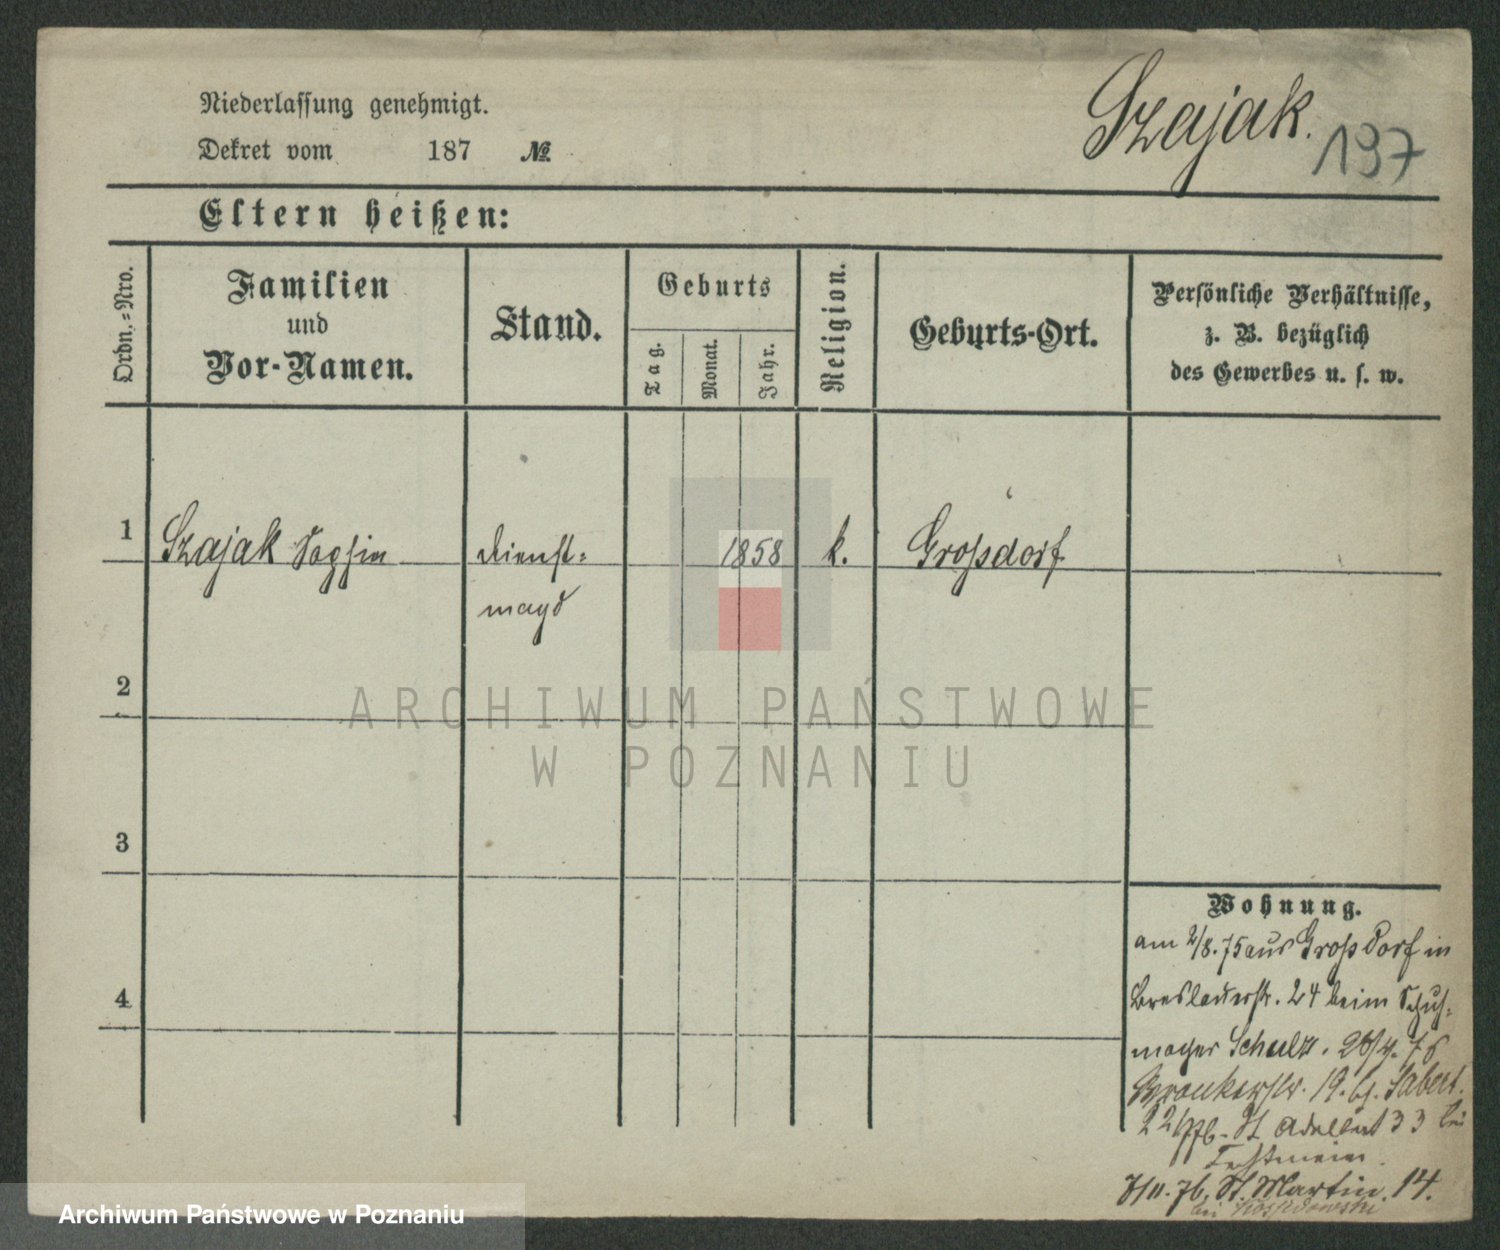 Niederlassung genehmigt.
Dekret vom 187 №
Szajak.
197
Eltern heißen:
Ordn.-Nro.
Familien
und
Vor-Namen.
Stand.
Geburts
Tag.
Monat.
Jahr.
Religion.
Geburts-Ort.
Persönliche Verhältnisse,
z. B. bezüglich
des Gewerbes u. s. w.
1 Szajak Sophie Dienst- 1858 k. Grossdorf
magd
2
3
4
ARCHIWUM PAŃSTWOWE
W POZNANIU
Wohnung.
am 2/8.75 aus Grossdorf in
Breslauerstr. 24 beim Schuh-
macher Schulz. 76
Wronkerstr. 19. bei
St Adalbert 33 bei
7/11.76. St. Martin. 14.
bei
Archiwum Państwowe w Poznaniu